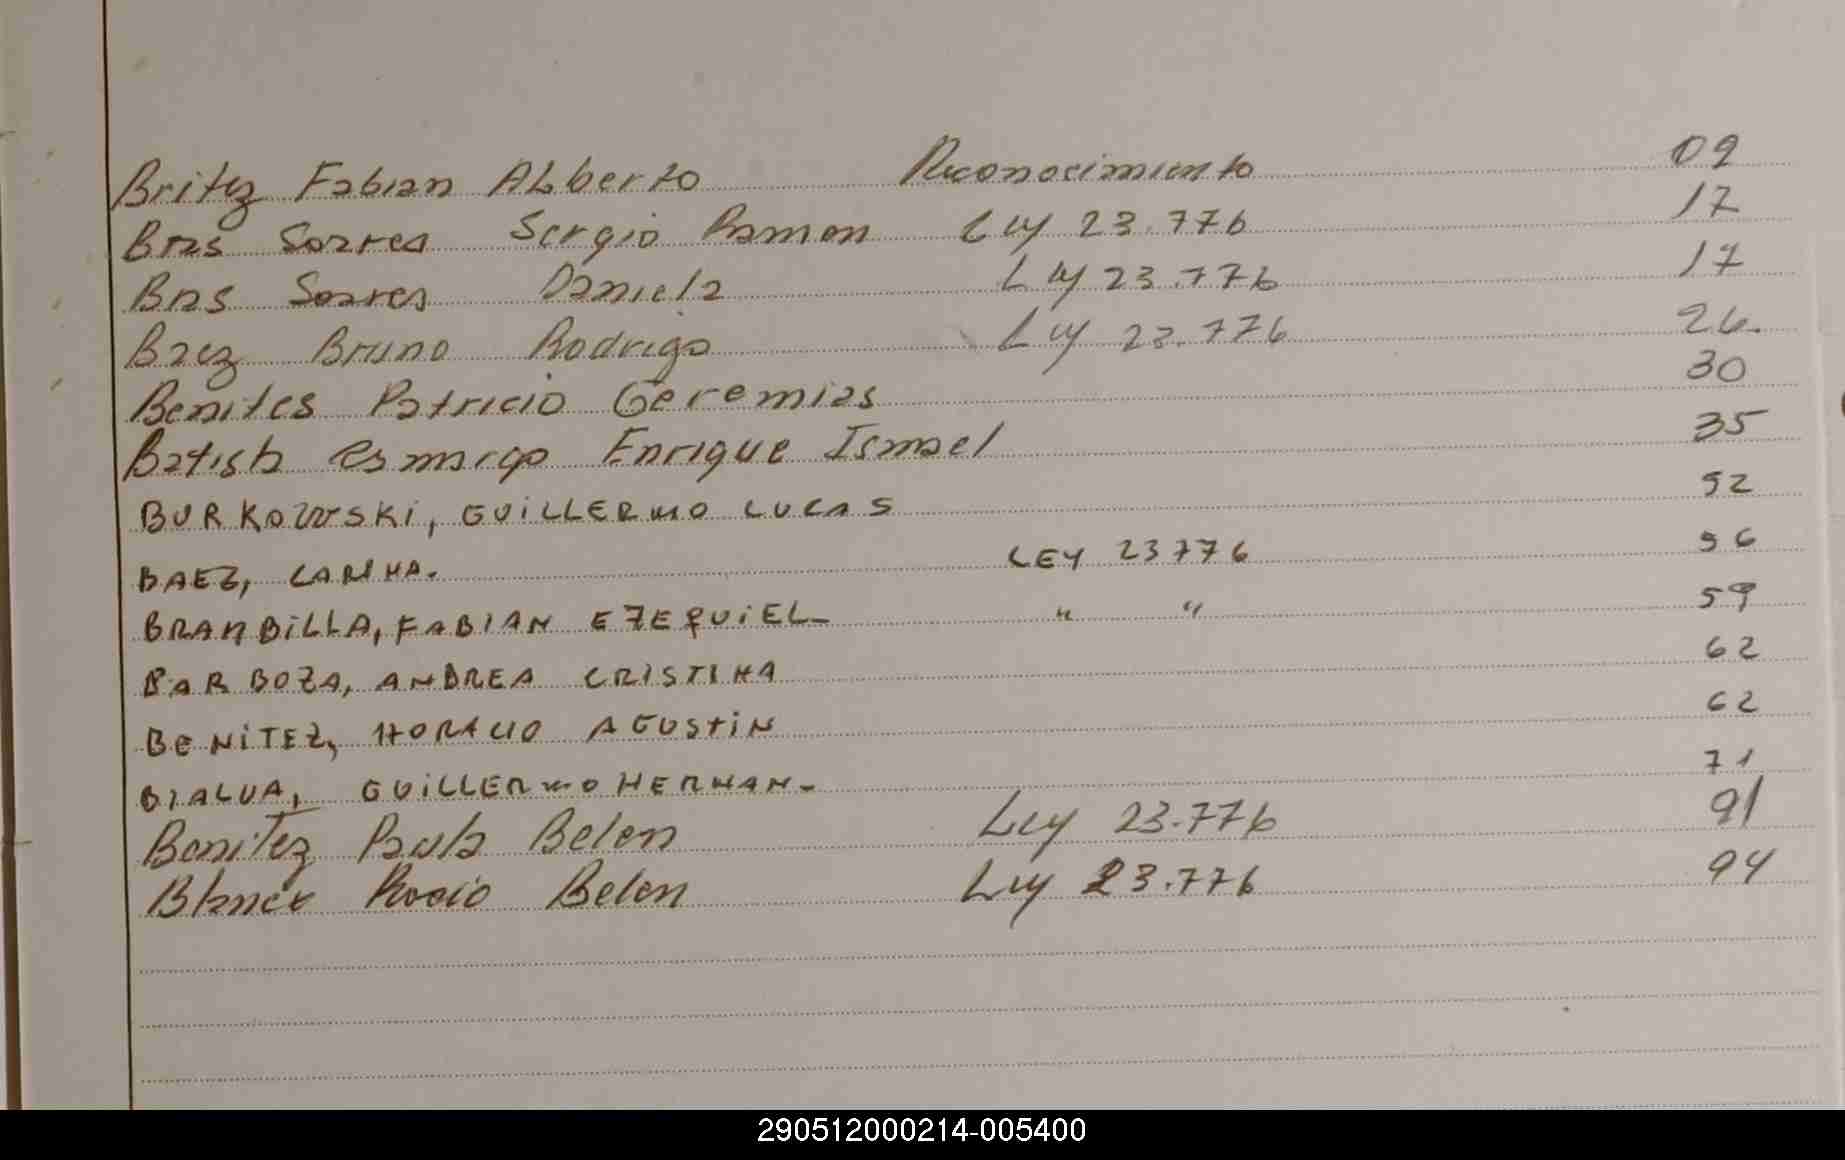 Britez Fabian ALberto Reconocimiento 09
Bras Soares Sergio Ramon Ley 23.776 17
Bras Soares Daniela Ley 23.776 17
Baez Bruno Rodrigo Ley 23.776 26.
Benites Patricio Geremias 30
Batista Enrique Ismael 35
BURKOWSKI, GUILLERMO LUCAS 52
BAEZ, LEY 23776 56
BRAMBILLA, FABIAN EZEQUIEL- " " 59
BARBOZA, ANDREA CRISTINA 62
BENITEZ, HORACIO AGUSTIN 62
GUILLERMO HERNAN- 71
Benitez Paula Belen Ley 23.776 91
Blanco Rocio Belen Ley 23.776 94
290512000214-005400